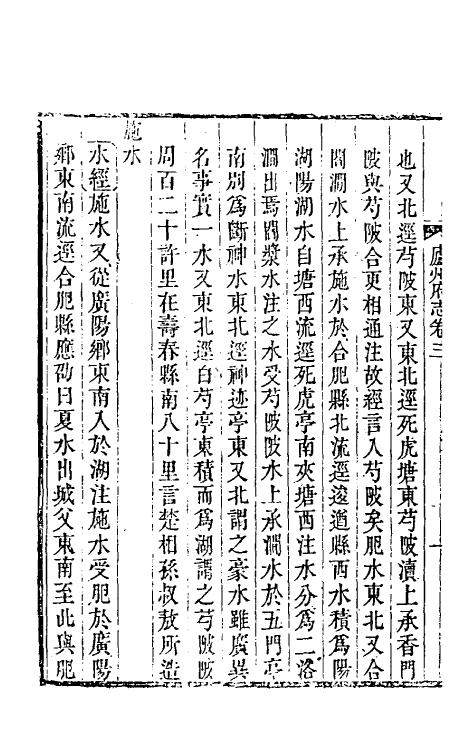 廬州府志卷三
也又北逕芍陂東又東北逕死虎塘東芍陂瀆上承香門
陂與芍陂合更相通注故經言入芍陂矣肥水東北又合
閻澗水上承施水於合肥縣北流逕浚遒縣西水積為陽
湖陽湖水自塘西流逕死虎亭南夾塘西注水分為二洛
澗出焉閻漿水注之水受芍陂陂水上承澗水於五門亭
南別為斷神水東北逕神迹亭東又北謂之豪水雖廣異
名事實一水又東北逕白芍亭東積而為湖謂之芍陂陂
周百二十許里在壽春縣南八十里言楚相孫叔敖所造
施水
水經施水又從廣陽鄉東南入於湖注施水受肥於廣陽
鄉東南流逕合肥縣應劭曰夏水出城父東南至此與肥